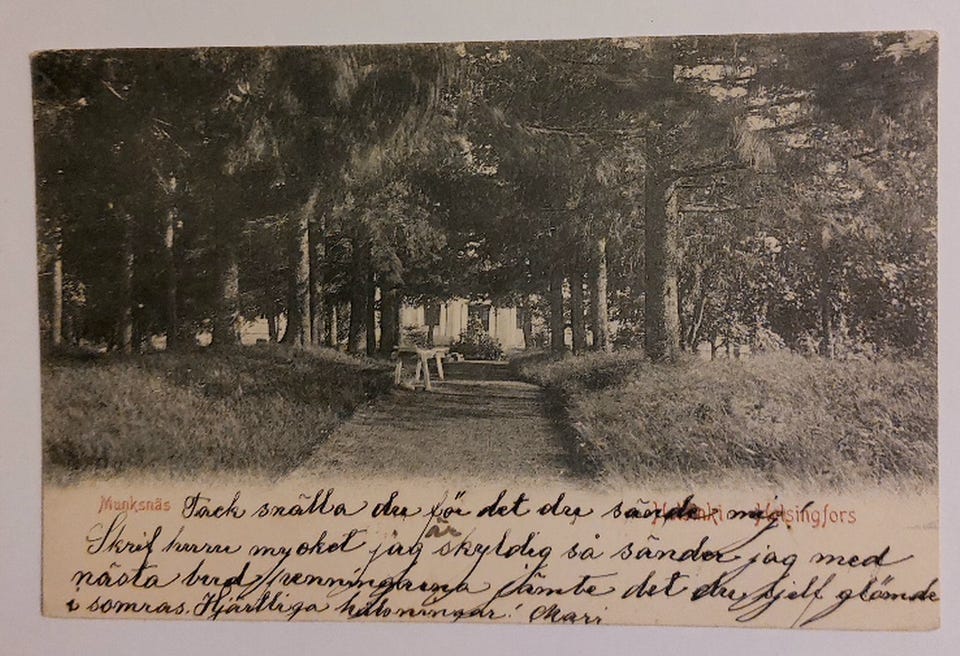 Munksnäs
Helsinki - Helsingfors
Tack snälla du för det du sände mig!
Skrif huru mycket jag är skyldig så sänder jag med
nästa bud penningarna jämte det du sjelf glömde
i somras. Hjärtliga hälsningar! Mari